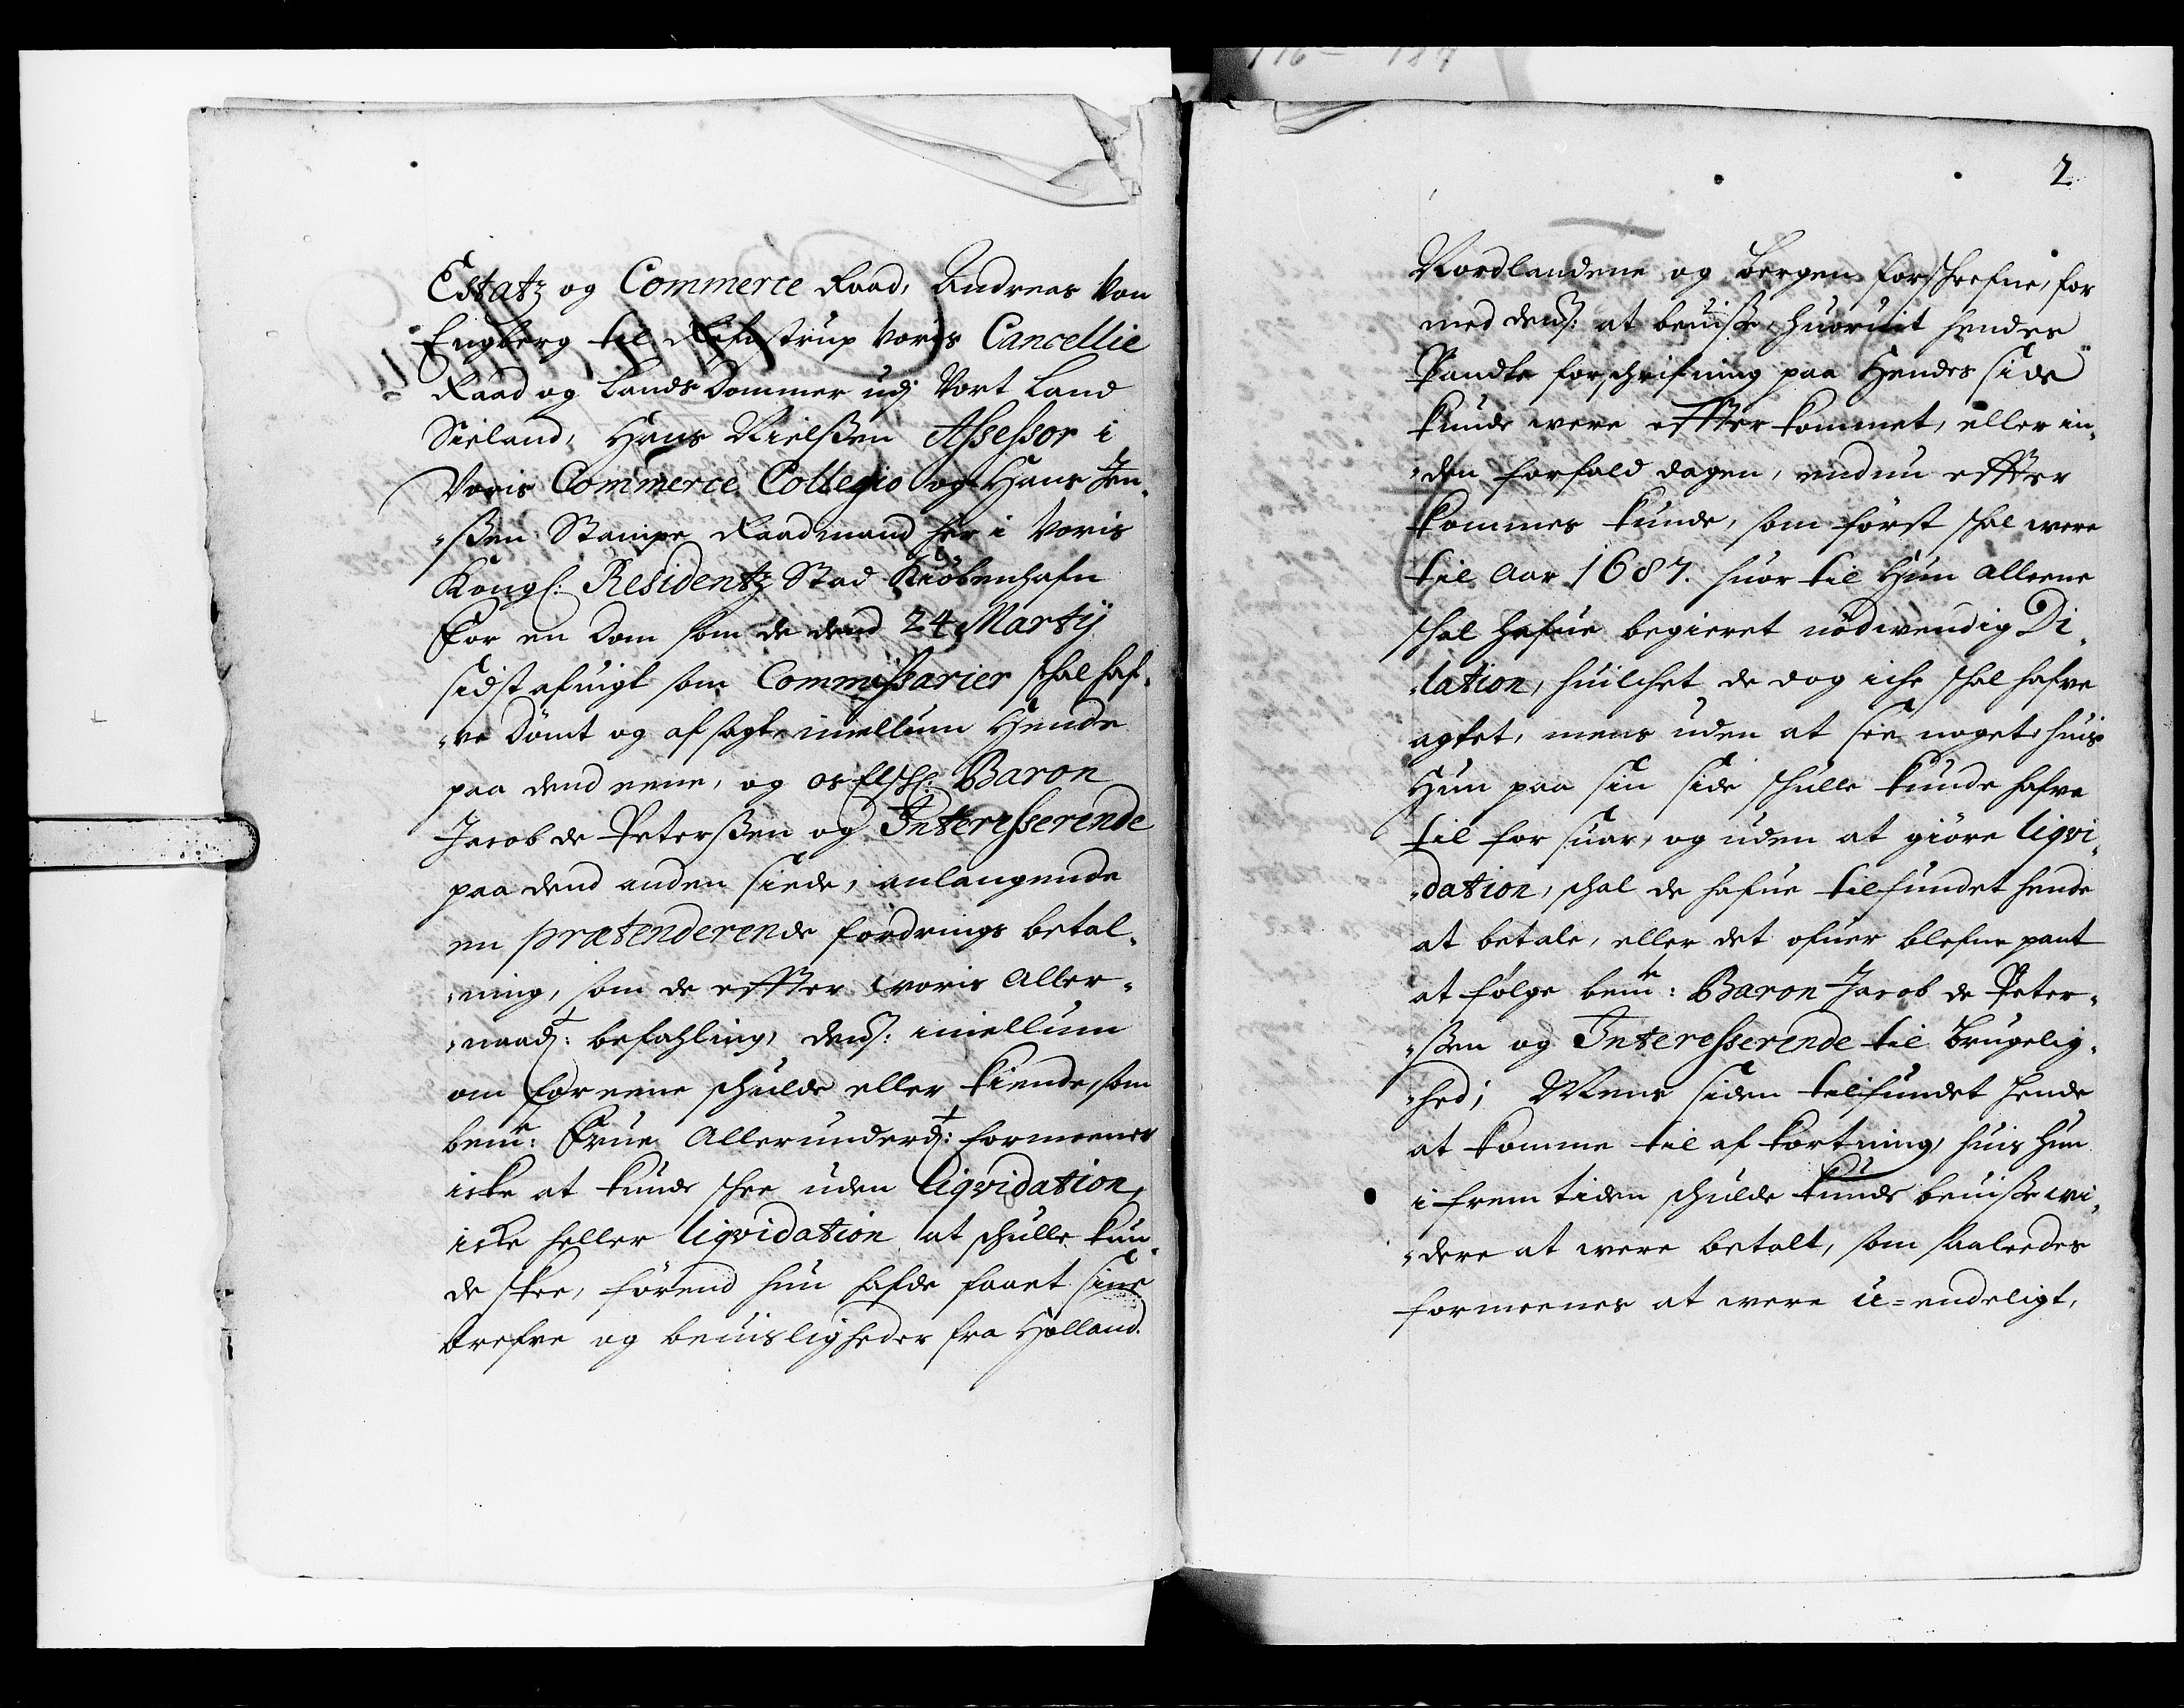 Estatz og Commerce Raad, Andreas Von
Engberg til Refstrup Voris Cancellie
Raad og Lands Dommer udj Vort Land
Sieland, Hans Nielßen Assessor i
Voris Commerce Collegio og Hans Jen,
„ßen Stampe Raadmand her i Voris
Kongl: Residentz Stad Kiøbenhafn
For en Dom som de dend 24 Martij
sidst afuigt som Commissarier schal haf,
„ve Dømt og afsagt imellum Hende
paa dend eene, og os Elschl: Baron
Jacob de Peterßen og Interesserende
paa dend anden siede, anlangende
en prætenderende fordrings betal,
„ning, som de effter voris Aller,
„naadt: befahling, dend: imellum
om forneene schulde eller kiende, som
bemte: Frue Allerunderdt: formeener
icke at kunde schee uden liqvidation,
icke heller liqvidation at schulle kun,
de skee, førend hun hafde faaet sine
brefve og beuisligheder fra Holland.
2
Nordlandene og Bergen forschrefne, for
med dend: at beuiße, huoruit hendes
Pandte forschrifning paa Hendes side
kunde were effterkommet, eller in,
„den forfald dagen, endnu effter
kommes kunde, som først schal were
til Aar 1687. huor til Hun alleene
schal hafue begieret nødwendig Di,
„lation, huilchet de dog iche schal hafve
agtet, mens uden at see noget, huis
Hun paa sin side schulle kunde hafve
til for suar, og uden at giøre liqvi,
„dation, schal de hafue tilfundet hende
at betale, eller det ofuer blefne pant
at følge bemte: Baron Jacob de Peter,
„ßen og Interesserende til Brugelig,
„hed; Mens siden tilfundet hende
at komme til afkortning, huis hun
i frem tiden schulde kunde beuiße wi,
„dere at were betalt, som saaleedes
formeenes at were u=endeligt,